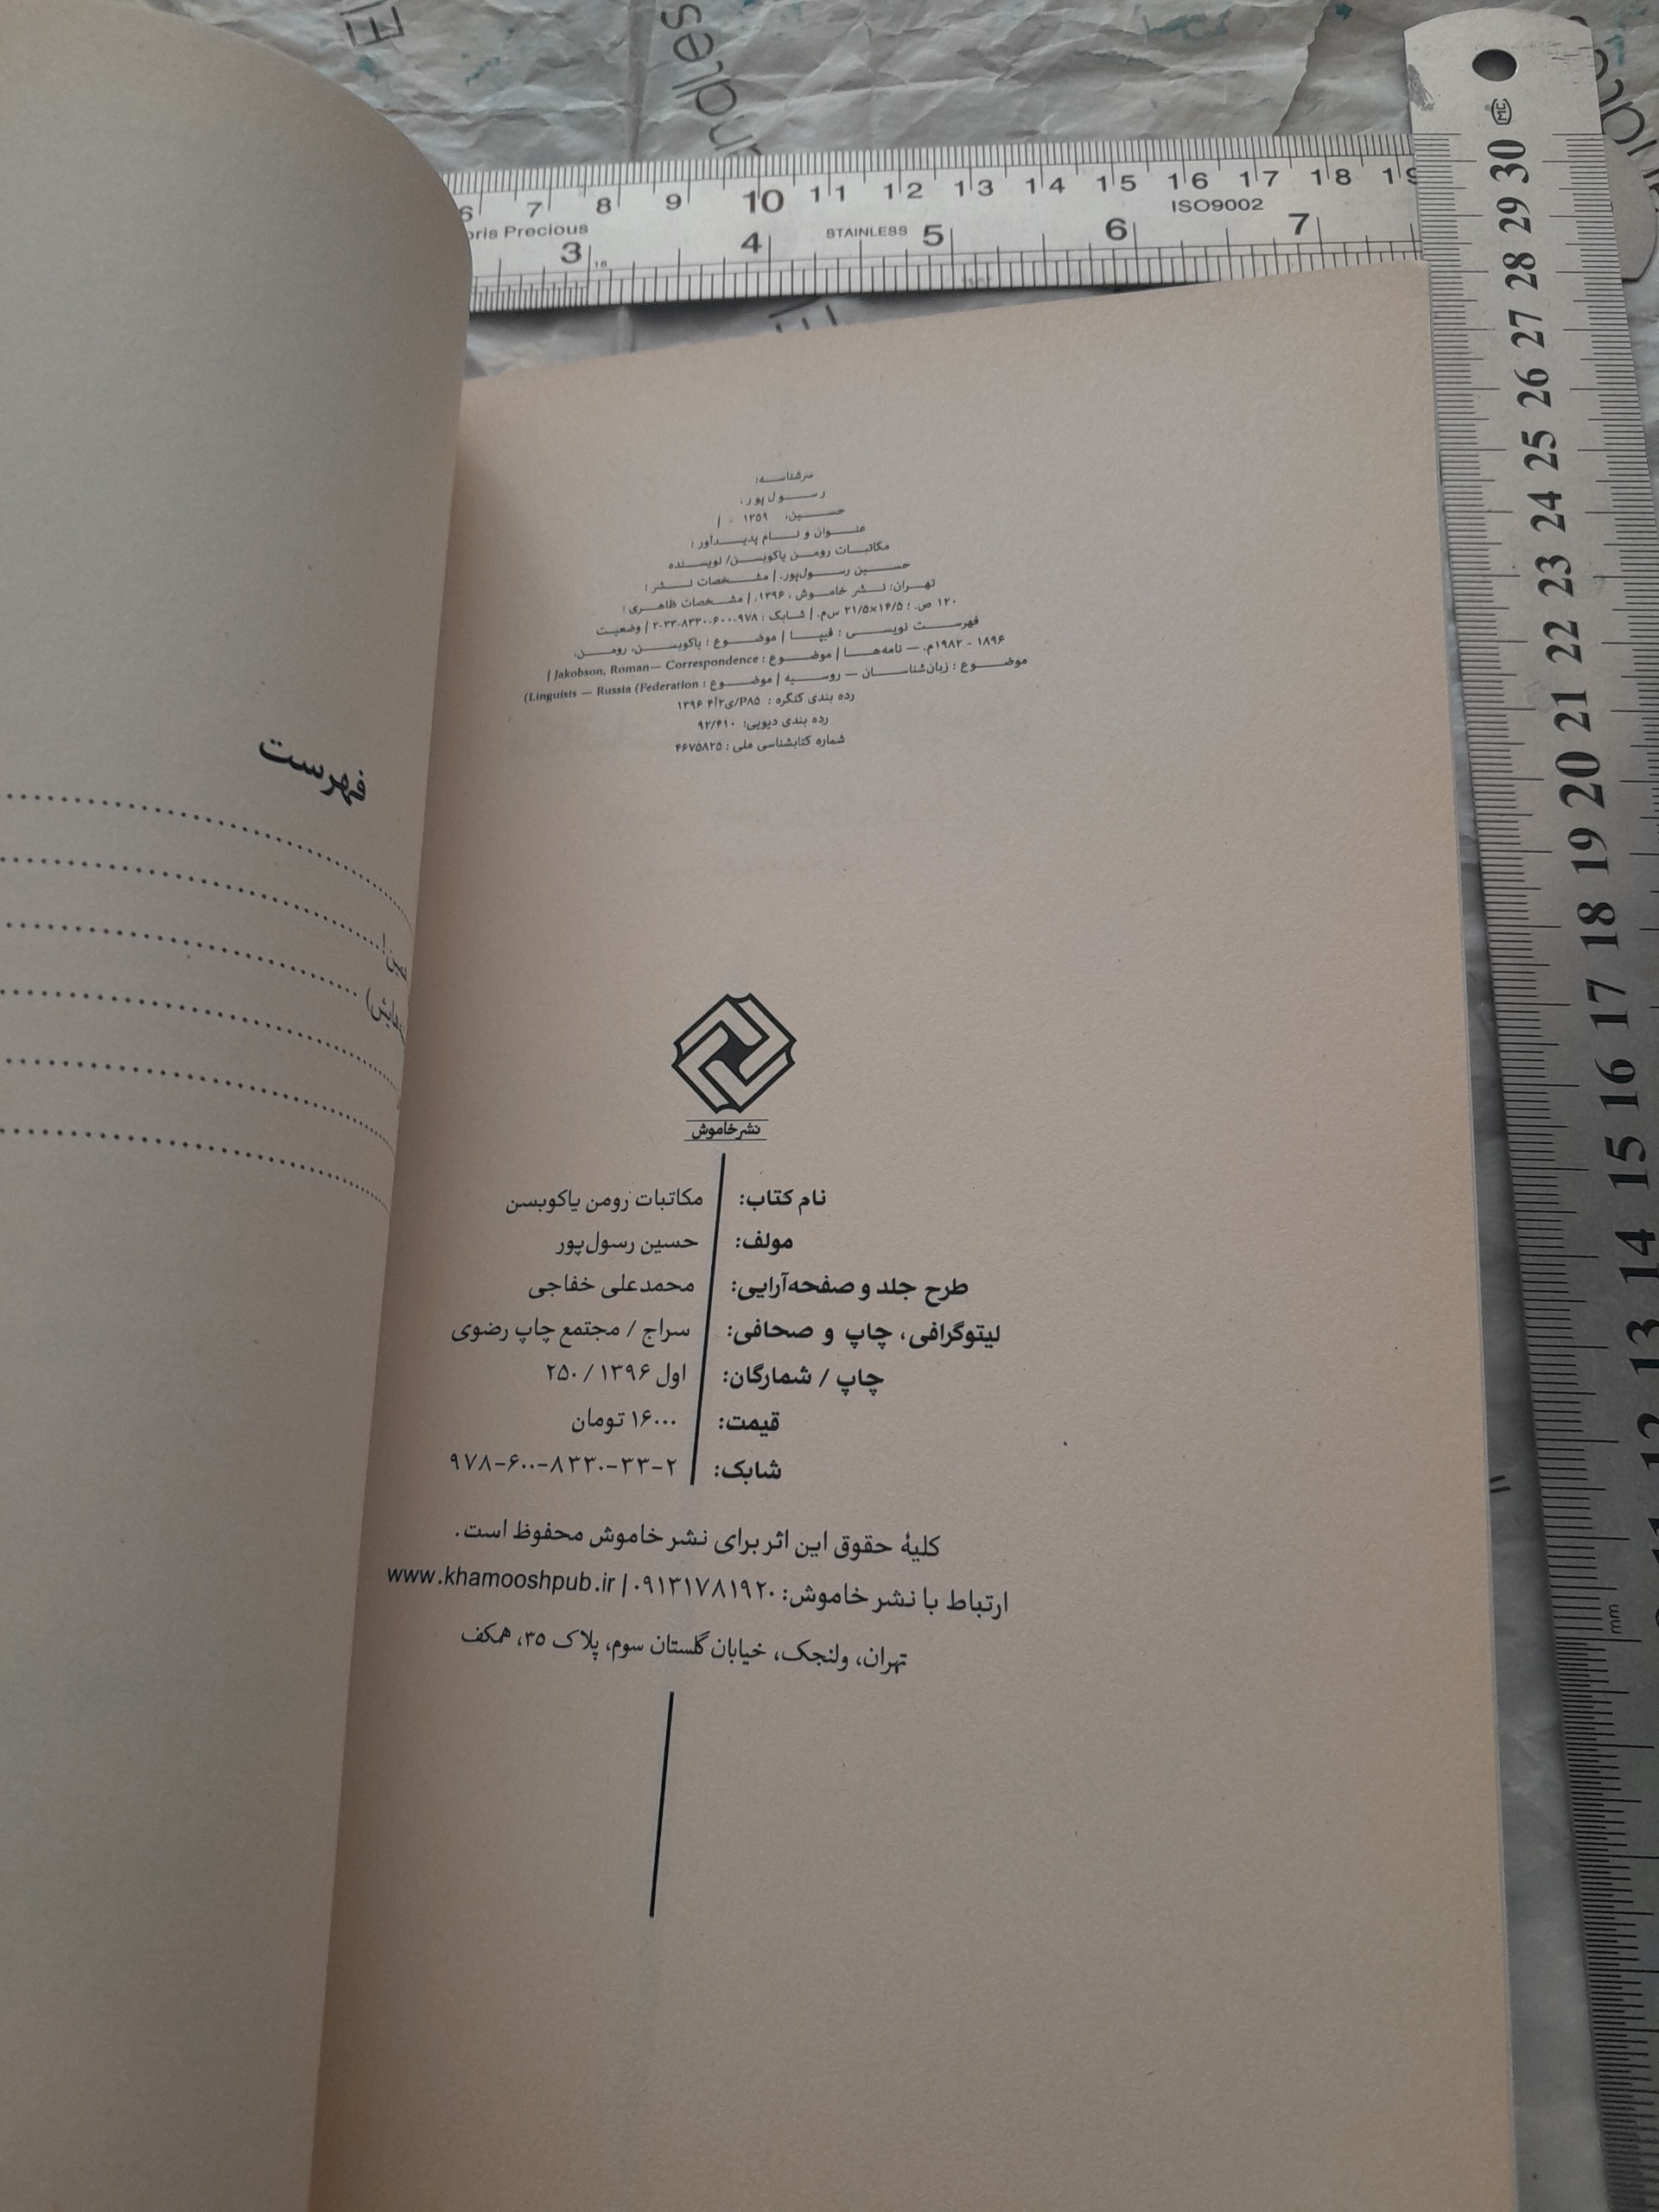 سرشناسه:
رسول پور،
حسین، ۱۳۵۹ - |
عنوان و نام پدیدآور :
مکاتبات رومن یاکوبسن/ نویسنده
حسین رسول‌پور. | مشخصات نشر :
تهران: نشر خاموش ، ۱۳۹۶. | مشخصات ظاهری :
۱۲۰ ص. ؛ ۱۴/۵×۲۱/۵ س‌م. | شابک : ۹۷۸-۶۰۰-۸۳۳۰-۳۳-۲ | وضعیت
فهرست نویسی : فیپا | موضوع : یاکوبسن، رومن،
۱۸۹۶ - ۱۹۸۲م. — نامه‌ها | موضوع : Jakobson, Roman— Correspondence |
موضوع : زبان‌شناسان — روسیه | موضوع : Linguists — Russia (Federation)
رده بندی کنگره : P۸۵/ی۲آ۴ ۱۳۹۶
رده بندی دیویی: ۹۲/۴۱۰
شماره کتابشناسی ملی : ۴۶۷۵۸۲۵
نشر خاموش
نام کتاب: مکاتبات رومن یاکوبسن
مولف: حسین رسول‌پور
طرح جلد و صفحه‌آرایی: محمدعلی خفاجی
لیتوگرافی، چاپ و صحافی: سراج / مجتمع چاپ رضوی
چاپ / شمارگان: اول ۱۳۹۶ / ۲۵۰
قیمت: ۱۶۰۰۰ تومان
شابک: ۹۷۸-۶۰۰-۸۳۳۰-۳۳-۲
کلیهٔ حقوق این اثر برای نشر خاموش محفوظ است.
ارتباط با نشر خاموش: ۰۹۱۳۱۷۸۱۹۲۰ | www.khamooshpub.ir
تهران، ولنجک، خیابان گلستان سوم، پلاک ۳۵، همکف
فهرست
6 7 8 9 10 11 12 13 14 15 16 17 18
Precious
STAINLESS
ISO9002
3 4 5 6 7
MC
30 29 28 27 26 25 24 23 22 21 20 19 18 17 16 15 14 13 12
mm